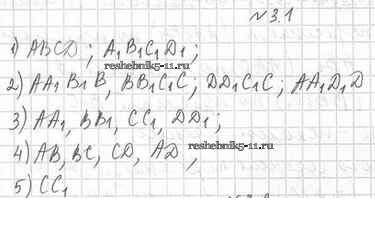 №3.1
1) ABCD; A₁B₁C₁D₁;
reshebnik5-11.ru
2) AA₁B₁B, BB₁C₁C, DD₁C₁C; AA₁D₁D
3) AA₁, BB₁, CC₁, DD₁;
4) AB, BC, CD, AD,
reshebnik5-11.ru
5) CC₁